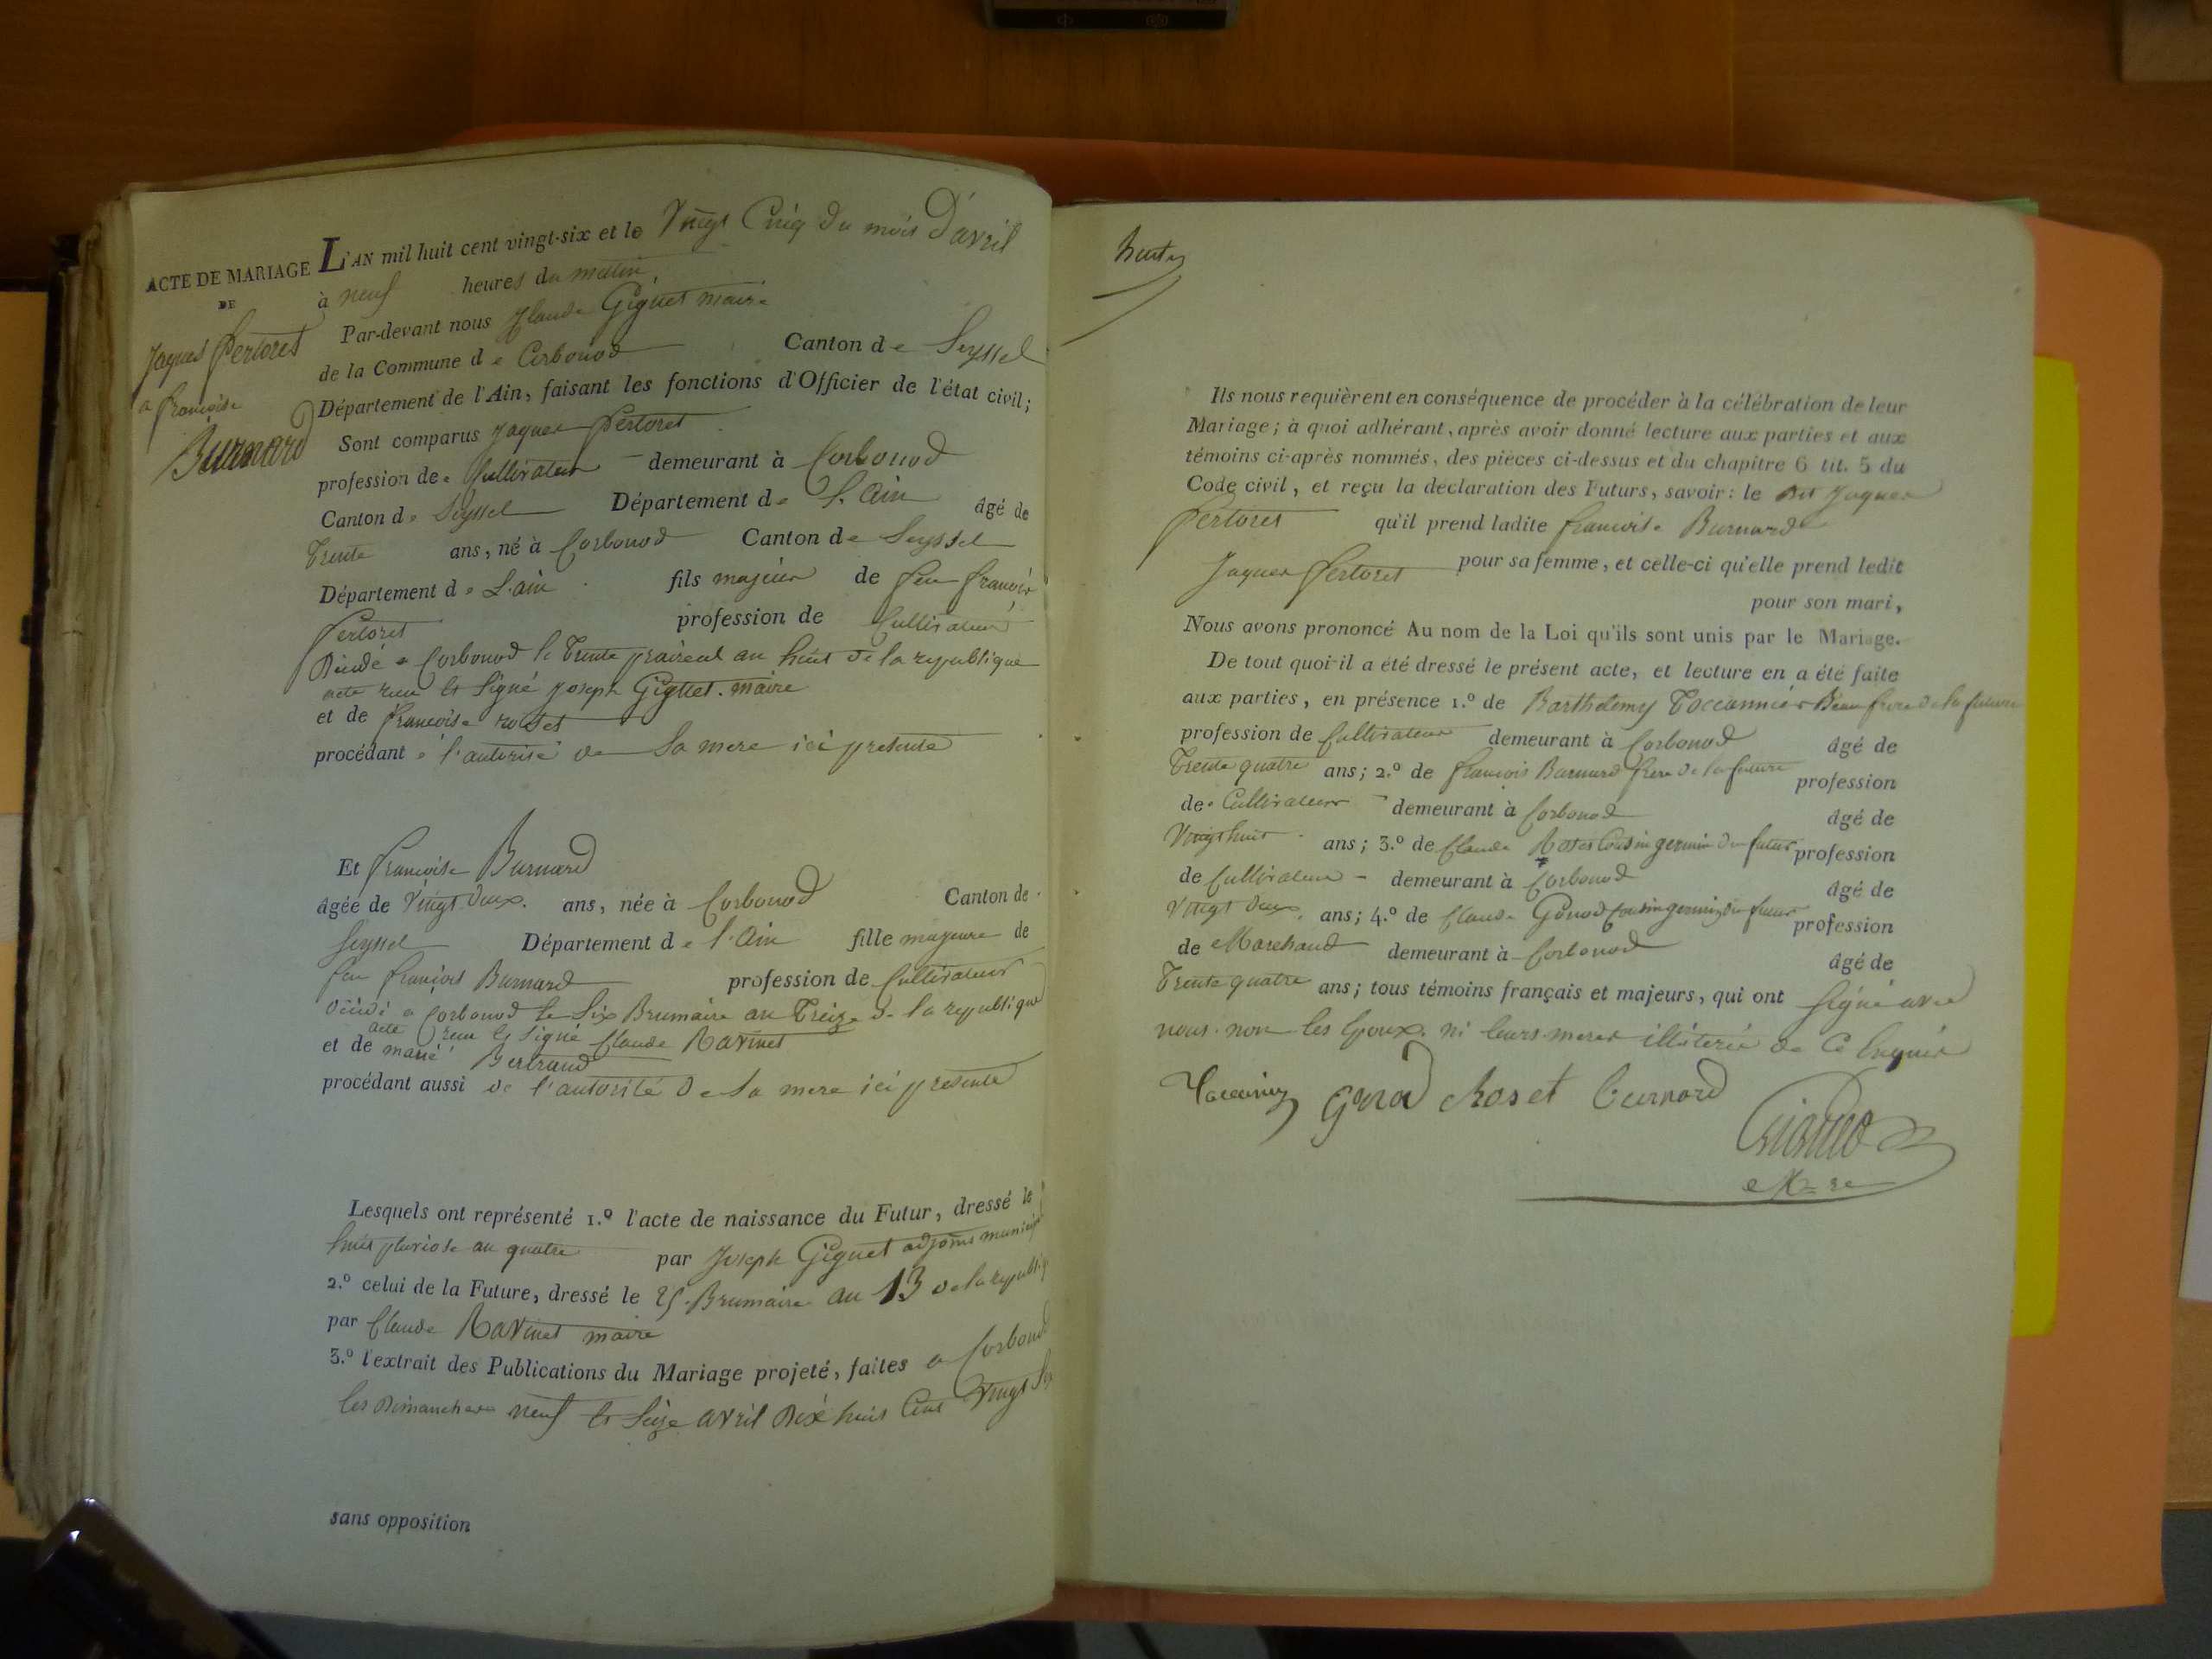 ACTE DE MARIAGE
DE
Jaques Pertoret
a françoise
Burnard
L'AN mil huit cent vingt-six et le Vingt Cinq du mois D'avril
à neuf heures du matin,
Par-devant nous Claude Giguet maire
de la Commune de Corbonod Canton de Seyssel
Département de l'Ain, faisant les fonctions d'Officier de l'état civil;
Sont comparus Jaques Pertoret
profession de Cultivateur demeurant à Corbonod
Canton de Seyssel Département de L'Ain âgé de
Trente ans, né à Corbonod Canton de Seyssel
Département de L'ain fils majeur de feu françois
Pertoret profession de Cultivateur
Décédé a Corbonod le Trente prairéal an huit de la republique
acte recu et Signé joseph Giguet. maire
et de françoise rostet
procédant de l'autorisé de Sa mere ici presente
Et françoise Burnard
âgée de Vingt deux. ans, née à Corbonod Canton de
Seyssel Département de l'Ain fille majeure de
feu françois Burnard profession de Cultivateur
décédé a Corbonod le Six Brumaire an Treize de la republique
acte recu et Signé Claude Ravinet
et de marie Bertrand
procédant aussi de l'autorité de Sa mere ici presente
Lesquels ont représenté 1.º l'acte de naissance du Futur, dressé le
huit pluviose an quatre par Joseph Giguet adjoint municipal
2.º celui de la Future, dressé le 25 Brumaire an 13 de la republique
par Claude Ravinet maire
3.º l'extrait des Publications du Mariage projeté, faites a Corbonod
les Dimanches neuf et Seize avril Dix huit Cent Vingt Six
sans opposition
Ils nous requièrent en conséquence de procéder à la célébration de leur
Mariage; à quoi adhérant, après avoir donné lecture aux parties et aux
témoins ci-après nommés, des pièces ci-dessus et du chapitre 6 tit. 5 du
Code civil, et reçu la déclaration des Futurs, savoir: le dit Jaques
Pertoret qu'il prend ladite françoise Burnard
pour sa femme, et celle-ci qu'elle prend ledit
Jaques Pertoret
pour son mari,
Nous avons prononcé Au nom de la Loi qu'ils sont unis par le Mariage.
De tout quoi il a été dressé le présent acte, et lecture en a été faite
aux parties, en présence 1.º de Barthelemy Toccannier Beau frere de la future
profession de Cultivateur demeurant à Corbonod âgé de
Trente quatre ans; 2.º de françois Burnard frere de la future profession
de Cultivateur demeurant à Corbonod âgé de
Vingt huit ans; 3.º de Claude Rostet Cousin germin du futur profession
de Cultivateur demeurant à Corbonod âgé de
Vingt deux, ans; 4.º de Claude Gonod Cousin germin du futur profession
de Marchand demeurant à Corbonod âgé de
Trente quatre ans; tous témoins français et majeurs, qui ont Signé avec
nous. non les Epoux. ni leurs meres illiterée de Ce Enquis
Gonod Roset burnard